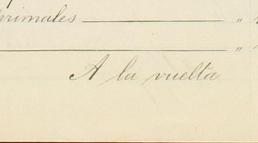 rimales „
„
A la vuelta